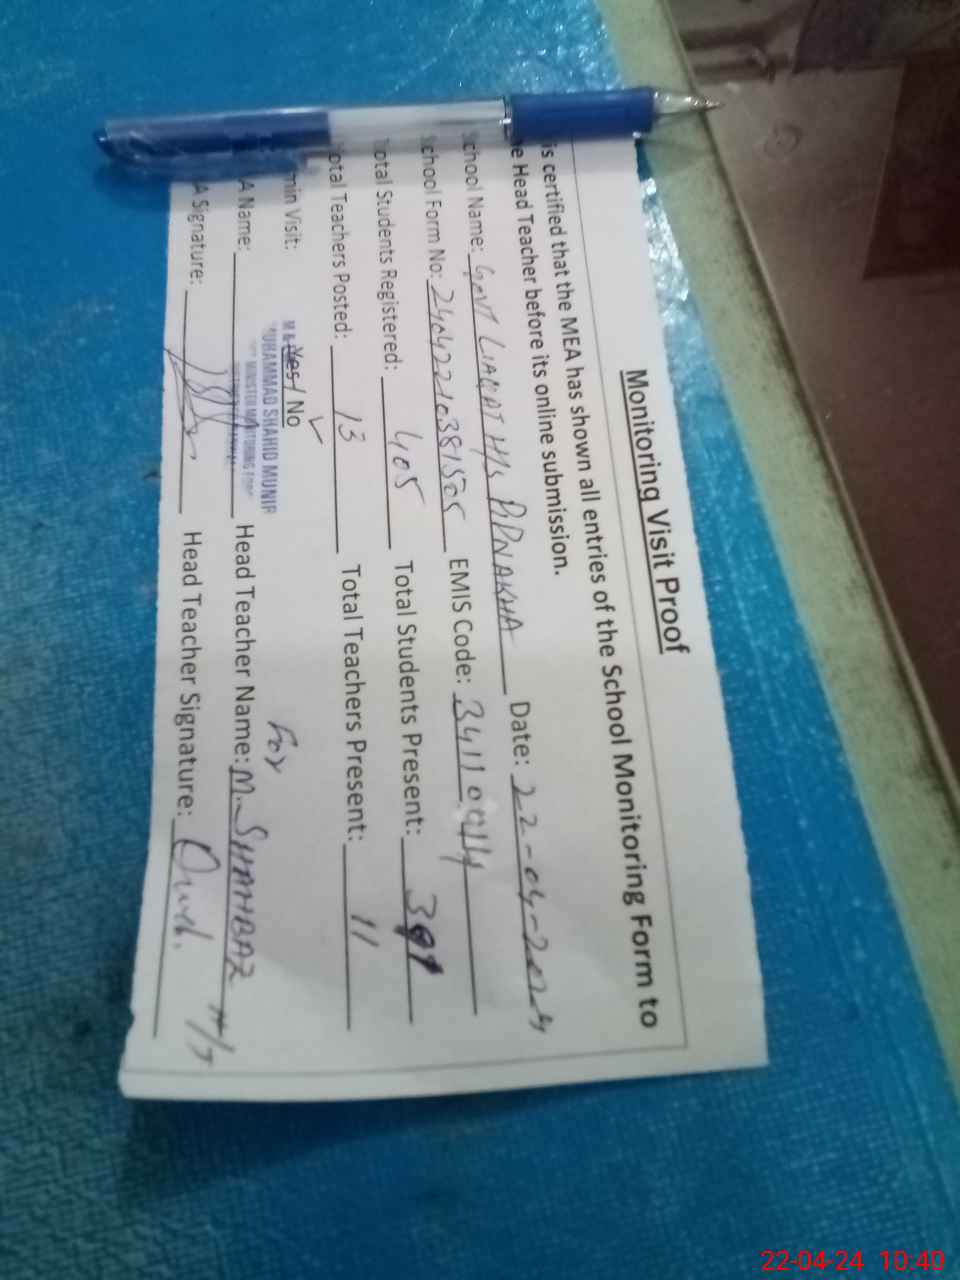 Monitoring Visit Proof
is certified that the MEA has shown all entries of the School Monitoring Form to
e Head Teacher before its online submission.
chool Name: Govt LIAQAT H/S Date: 22-04-2024
chool Form No: EMIS Code: 34110914
Total Students Registered: 405 Total Students Present:
otal Teachers Posted: 13 Total Teachers Present: 11
min Visit: Yes / No ✓
MUHAMMAD SHAHID MUNIR
A Name: Head Teacher Name: M. SHAHBAZ
For
A Signature: Head Teacher Signature:
22-04-24 10:40